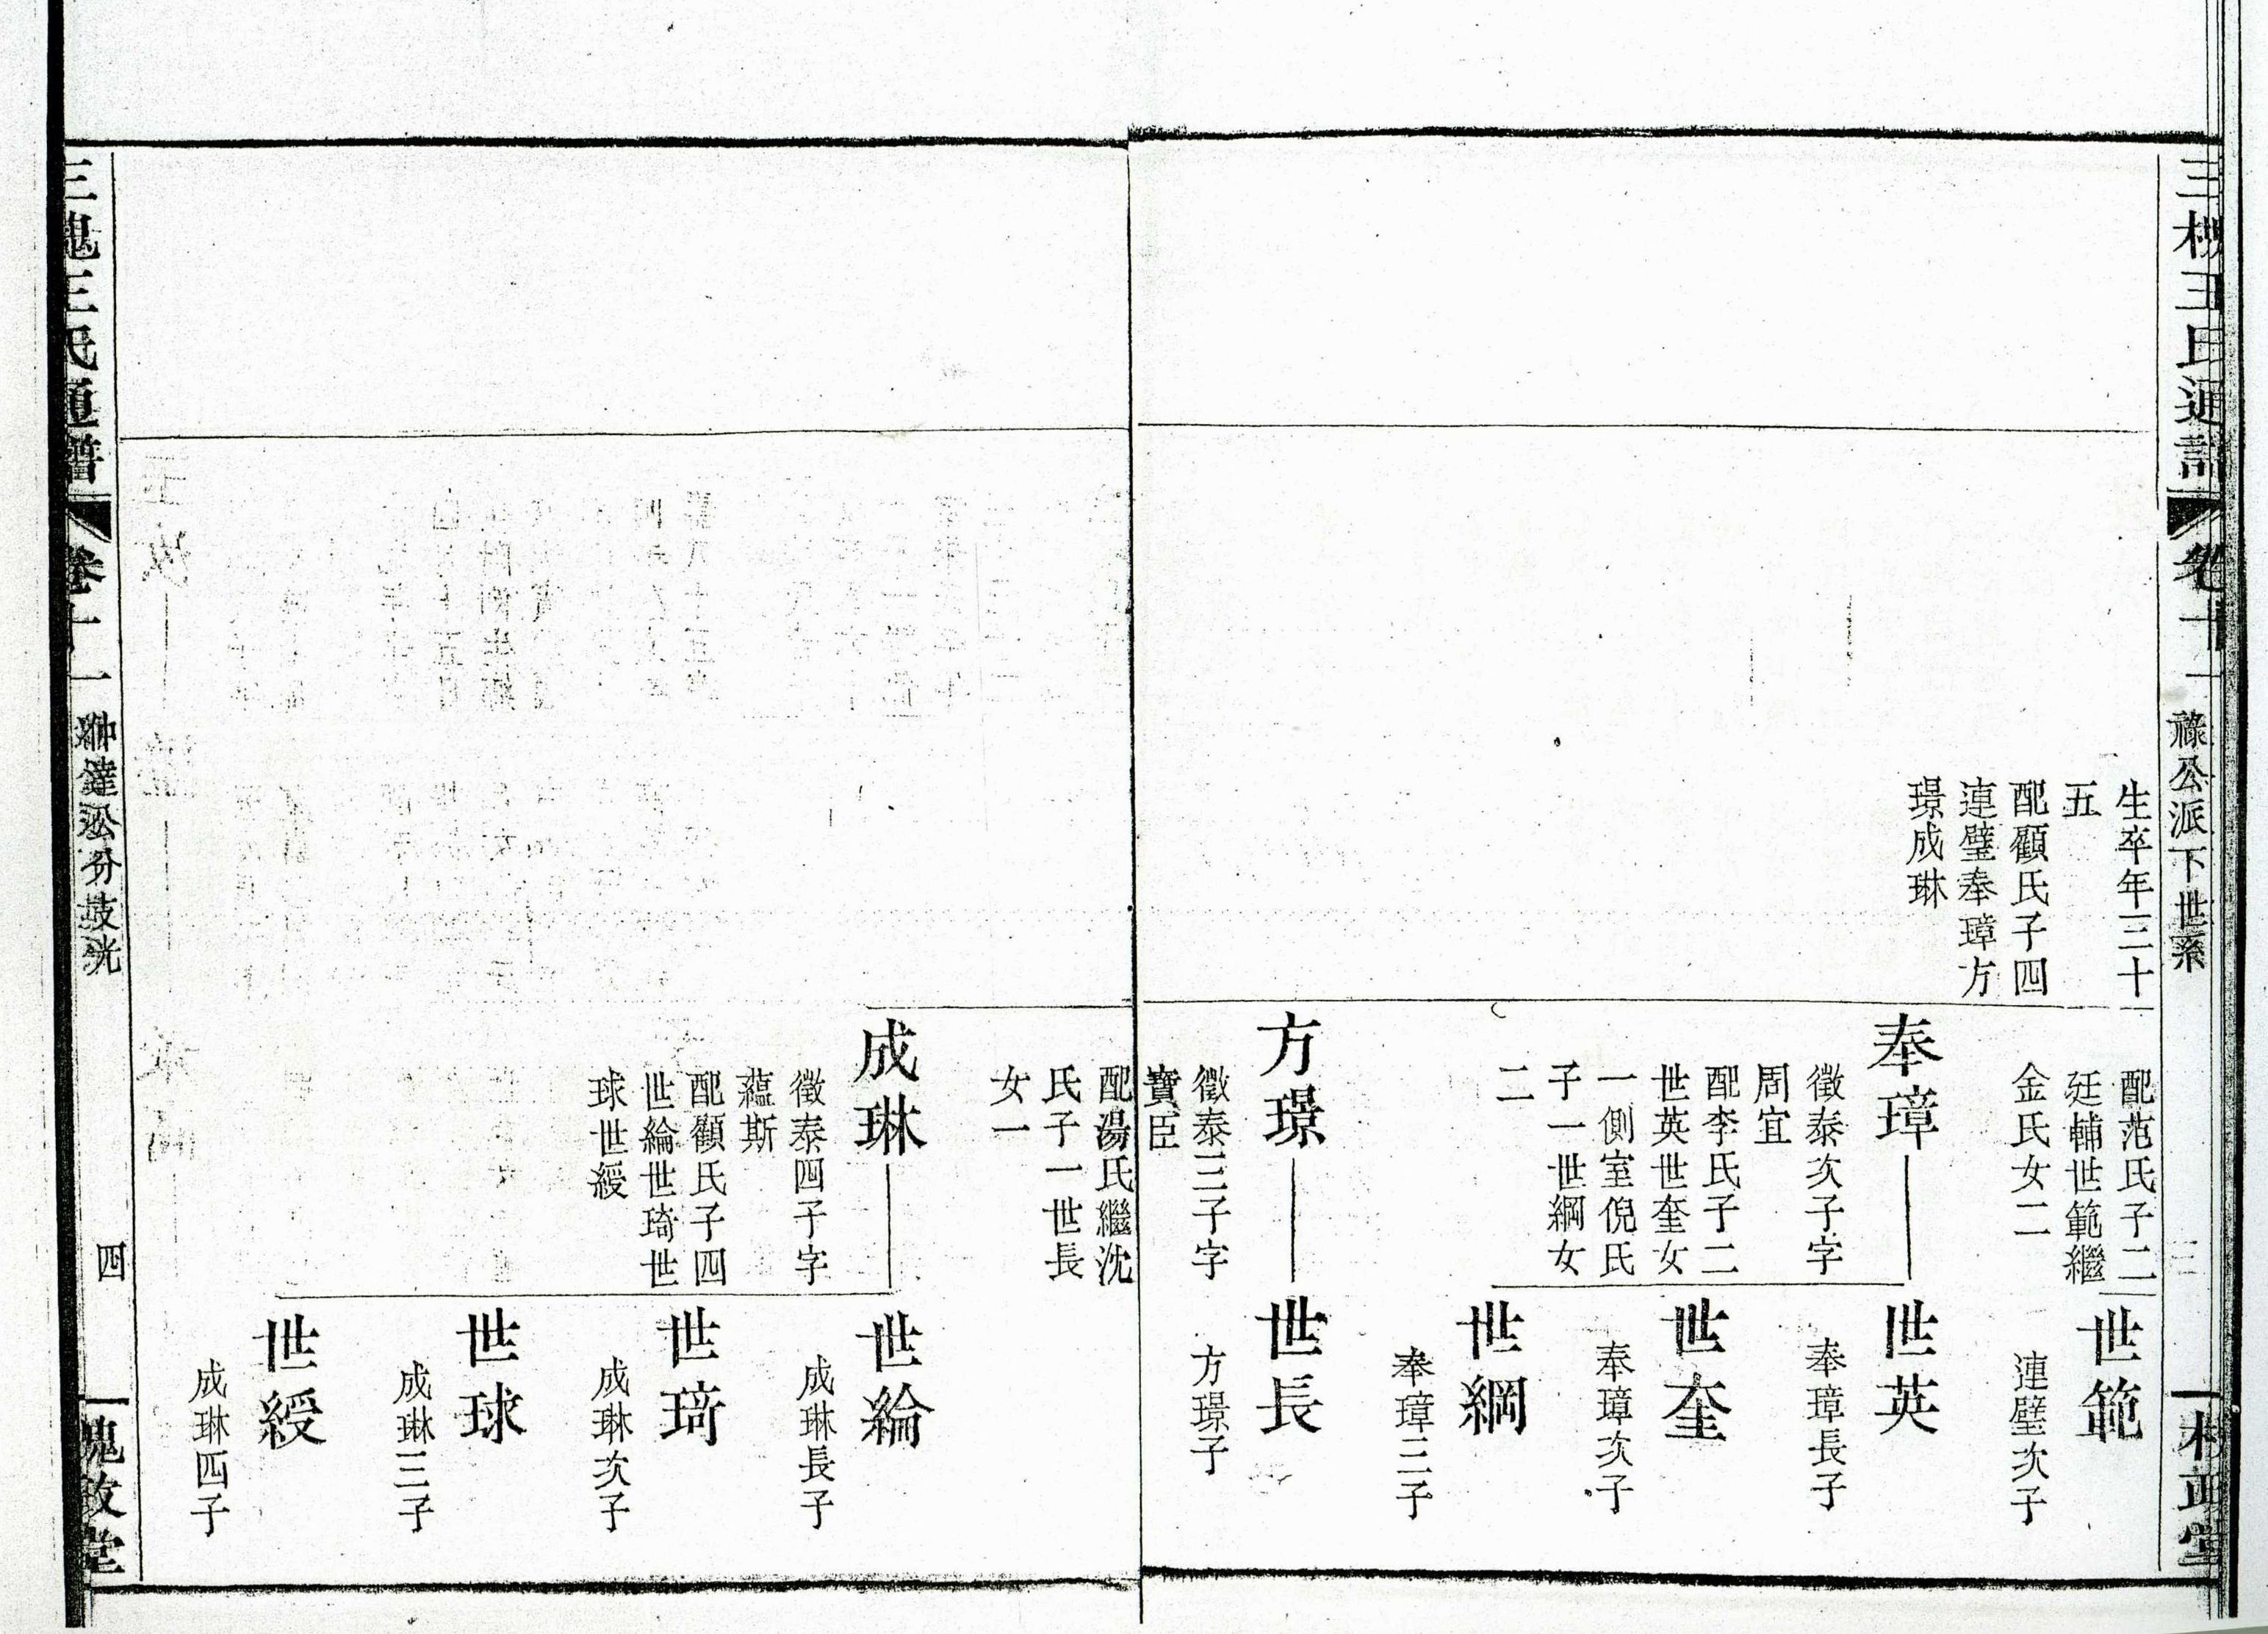 三槐王氏通譜
卷十一
祿公派下世系
三
槐政堂
生卒年三十
五
配顧氏子四
連璧奉璋方
璟成琳
配范氏子二
廷輔世範繼
金氏女二
奉璋
徵泰次子字
周宜
配李氏子二
世英世奎女
一側室倪氏
子一世綱女
二
方璟
徵泰三子字
寶臣
世範
連璧次子
世英
奉璋長子
世奎
奉璋次子
世綱
奉璋三子
世長
方璟子
配湯氏繼沈
氏子一世長
女一
成琳
徵泰四子字
蘊斯
配顧氏子四
世綸世琦世
球世綬
世綸
成琳長子
世琦
成琳次子
世球
成琳三子
世綬
成琳四子
三槐王氏通譜
卷十一
四
槐政堂